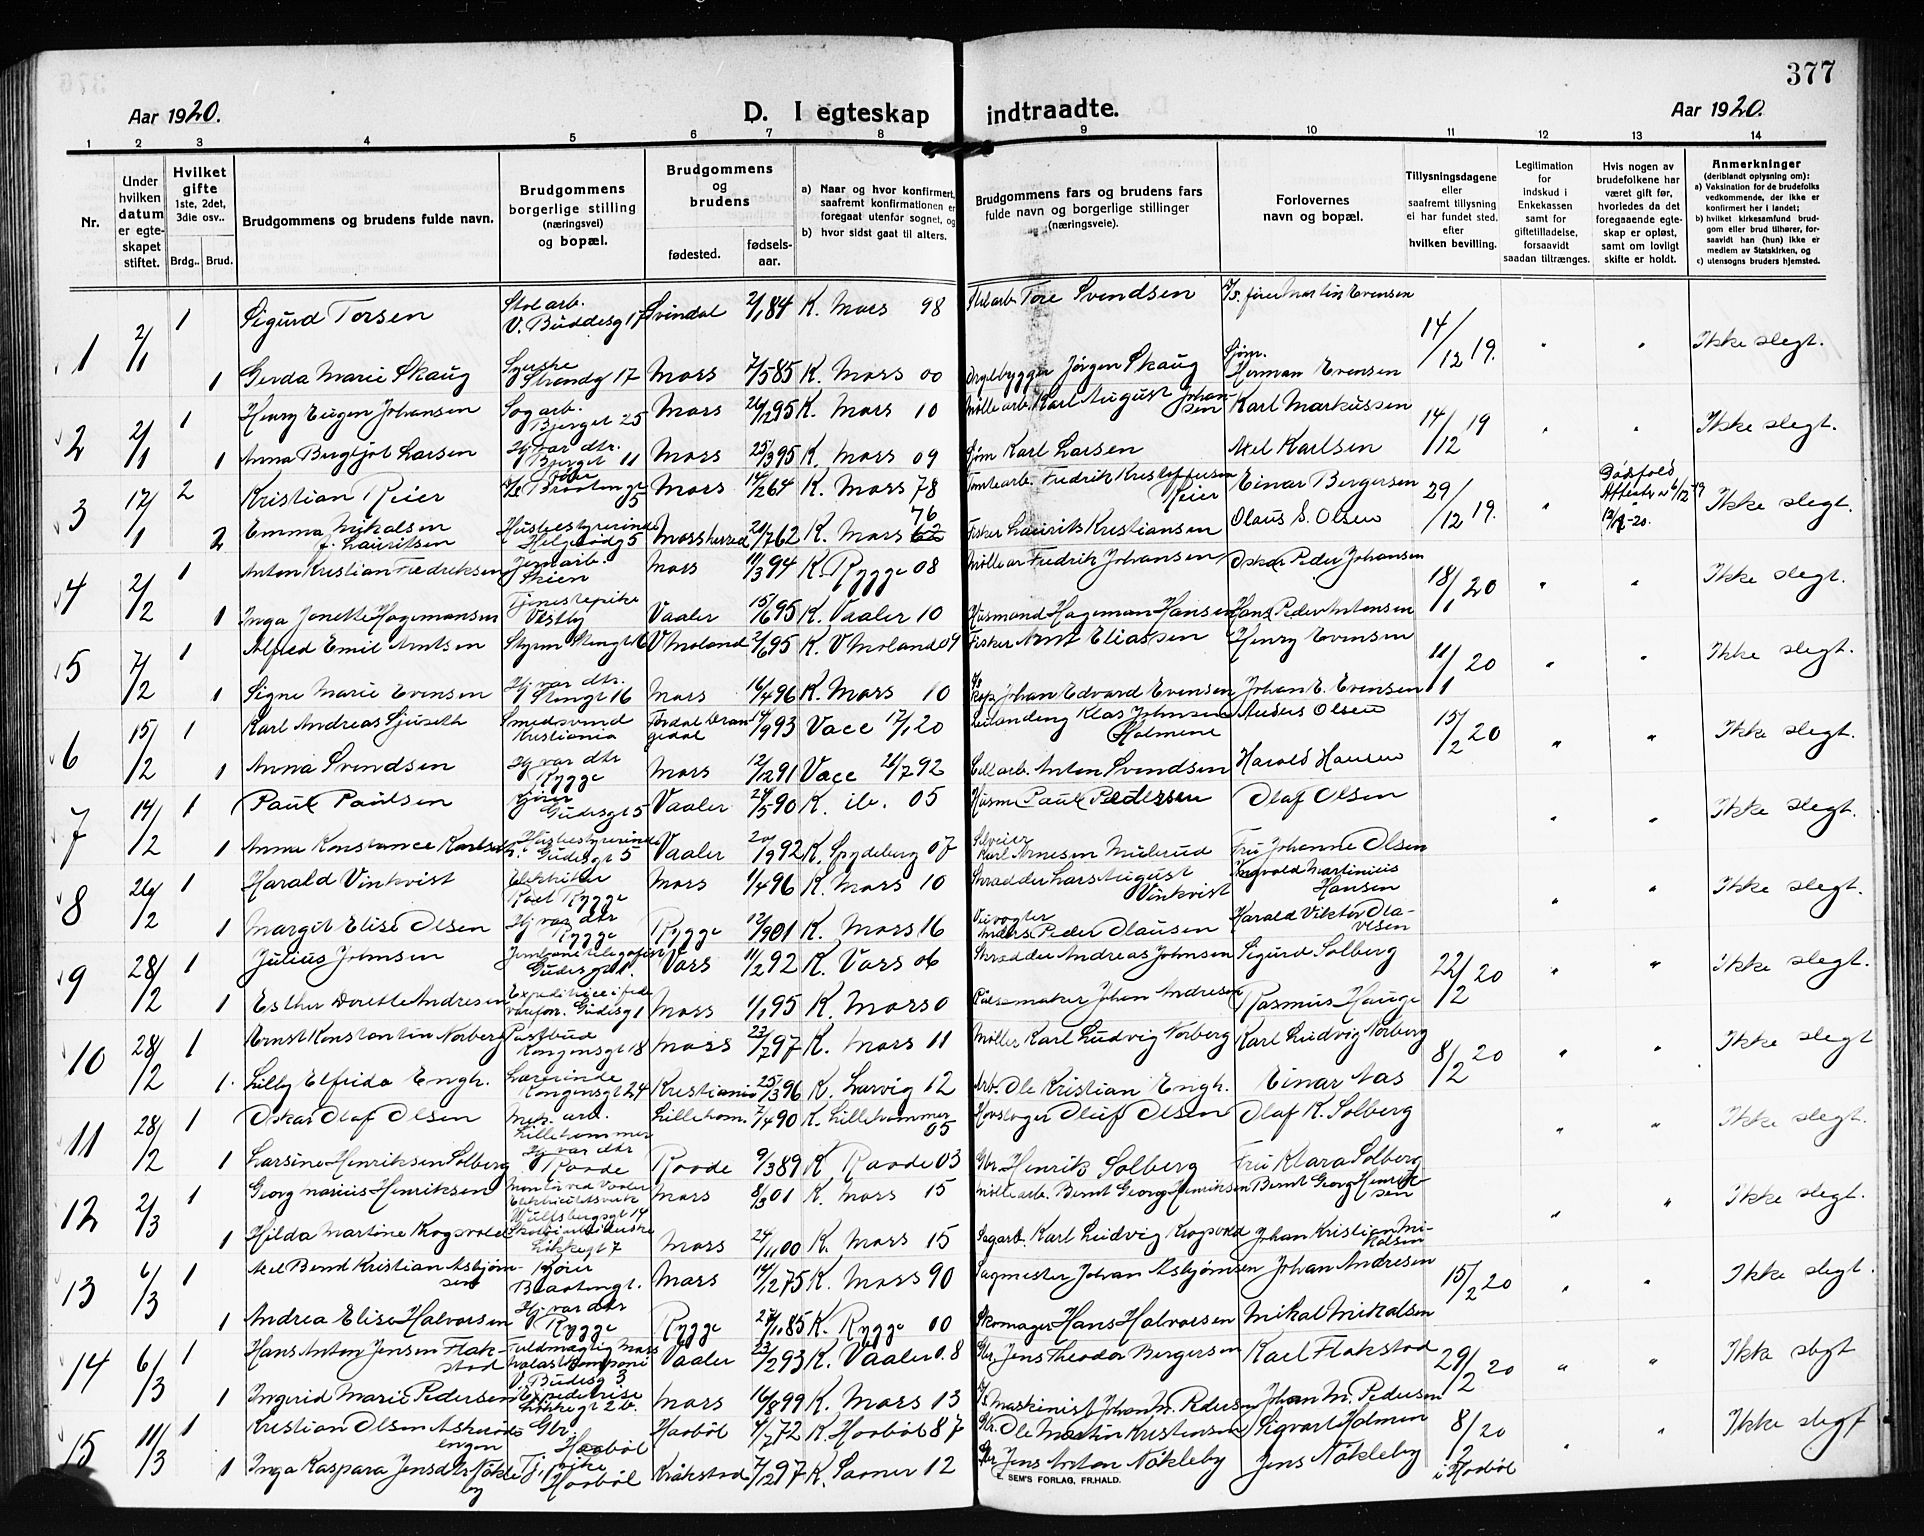 377
Aar 1920.
D. I egteskap indtraadte.
Aar 1920.
1 2 3 4 5 6 7 8 9 10 11 12 13 14
Nr.
Under hvilken datum er egteskapet stiftet.
Hvilket gifte 1ste, 2det, 3die osv..
Brdg.. Brud.
Brudgommens og brudens fulde navn.
Brudgommens borgerlige stilling (næringsvei) og bopæl.
Brudgommens og brudens
fødested. fødsels-aar.
a) Naar og hvor konfirmert, saafremt konfirmationen er foregaat utenfor sognet, og
b) hvor sidst gaat til alters.
Brudgommens fars og brudens fars fulde navn og borgerlige stillinger (næringsveie).
Forlovernes navn og bopæl.
Tillysningsdagene eller saafremt tillysning ei har fundet sted. efter hvilken bevilling.
Legitimation for indskud i Enkekassen samt for giftetilladelse, forsaavidt saadan tiltrænges.
Hvis nogen av brudefolkene har været gift før, hvorledes da det foregaaende egteskap er opløst, samt om lovligt skifte er holdt.
Anmerkninger (deriblandt oplysning om):
a) Vaksination for de brudefolks vedkommende, der ikke er konfirmert her i landet;
b) hvilket kirkesamfund brudgom eller brud tilhører, forsaavidt han (hun) ikke er medlem av Statskirken, og
c) utensogns bruders hjemsted.
1 2/1 1 Sigurd Torsen Stol arb. V. Buddesg 17 Svindal 2/1 84 K. Moss 98 Tore Svendsen Martin Evensen 14/12 19. " " Ikke slegt.
1 Gerda Marie Skaug Syerske Strandg 17 Moss 7/5 85 K. Moss 00 Jörgen Skaug Sjøm. Herman Evensen
2 2/1 1 Henry Eugen Johansen Sog arb. Bjerget 25 Moss 26/12 95 K. Moss 10 Mölle arb. Karl August Johansen Karl Markussen 14/12 19 " " Ikke slegt.
1 Anna Bergljot Larsen Hj var dtr. Bjerget 11 Moss 25/3 95 K. Moss 09 Sjøm Karl Larsen Axel Karlsen
3 17/1 2 Kristian Reier 5 Moss 14/2 64 K. Moss 78 Tomtearb. Fredrik Kristoffersen Reier Einar Bergersen 29/12 19. " Dödsfald Ikke slegt.
2 Emma Mikalsen f. Lauritsen Husbestyrerinde Helgerödg 5 Mossherred 21/7 62 K. Moss 76 Fisker Laurits Kristiansen Olaus S. Olsen
4 2/2 1 Anton Kristian Fredriksen Jernarb. Skien Moss 11/3 94 K. Rygge 08 Fredrik Johansen Oskar Peder Johansen 18/1 20 " " Ikke slegt.
1 Inga Jonette Hagemansen Tjenestepike Vestby Vaaler 15/6 95 K. Vaaler 10 Husmand Hageman Hansen Hans Peder Antonsen
5 7/2 1 Alfred Emil Arntsen Styrm Stengt 16 V Moland 2/6 95 K. V Moland 09 Fisker Arnt Eliassen Henry Evensen 11/1 20 " " Ikke slegt.
1 Signe Marie Evensen Hj var dtr. Stengt 16 Moss 16/4 96 K. Moss 10 Johan Edvard Evensen Johan E. Evensen
6 15/2 1 Karl Andreas Sjuseth Smedsvend Kristiania 14/9 93 Vacc 17/1 20 Klas Johnsen Holmene Anders Olsen 15/2 20 " " Ikke slegt.
1 Anna Svendsen Hj var dtr Rygge Moss 12/12 91 Vacc 26/7 92 Anton Svendsen Harald Hansen
7 14/2 1 Paul Paulsen Gudesgt 5 Vaaler 24/5 90 K. ib. 05 Husm Paul Pedersen Olaf Olsen " " Ikke slegt.
1 Anna Konstance Husbestyrerinde Gudesgt 5 Vaaler 20/9 92 K. Spydeberg 07 Selveier Karl Arnesen Mulerud Fru Johanne Olsen
8 26/2 1 Harald Vinkvist Elektriker Rygge Moss 1/4 96 K. Moss 10 Skrædder Lars August Vinkvist Martinius Hansen " " Ikke slegt.
1 Margit Elise Olsen Hj var dtr Rygge Rygge 12/9 01 K. Moss 16 Anders Peder Olausen Harald Viktor Olavesen
9 28/2 1 Julius Johnsen Gudesgt 1. Vors 11/2 92 K. Vors 06 Skrædder Andreas Johnsen Sigurd Solberg 22/2 20 " " Ikke slegt.
1 Esther Dorette Andresen Gudesg 1 Moss 1/1 95 K. Moss 0 Pölsemaker Johan Andresen Rasmus Hauge
10 28/2 1 Ernst Konstantin Norberg Postbud Kongensgt 18 Moss 23/7 97 K. Moss 11 Möller Karl Ludvig Norberg Karl Ludvig Norberg 8/2 20 " " Ikke slegt
1. Lilly Elfrida Engh. Lærerinde Kongensgt 24 Kristiania 25/3 96 K. Larvig 12 Arb. Ole Kristian Engh. Einar Aas
11 28/2 1 Oskar Olaf Olsen Mek. arb. Lillehammer Lilleham. 7/4 90 K. Lillehammer 05 Hovslager Oluf Olsen Olaf K. Solberg " " Ikke slegt.
1 Larsine Henriksen Solberg Hj var dtr Raade Raade 9/3 89 K Raade 03 Gbr. Henrik Solberg Fru Klara Solberg
12 2/3 1 Georg Marius Henriksen Montör ved Vaaler Elektricitetsverk Wulfsbergsgt 14 Moss 8/3 01 K. Moss 15 Möllearb. Bernt Georg Henriksen Bernt Georg Henriksen " " Ikke slegt.
1 Hilda Martine Krogsvold Lökkegt 7 Moss 24/11 00 K. Moss 15 Sagarb. Karl Ludvig Krogsvold Johan Kristian Mikalsen
13 6/3 1 Axel Bernt Kristian Asbjörnsen Moss 14/12 75 K. Moss 90 Sagmester Johan Asbjörnsen Johan Andresen 15/2 20 " " Ikke slegt.
1 Andrea Elise Halvorsen Hj. var dtr Rygge Rygge 27/11 85 K. Rygge 00 Skomager Hans Halvorsen Mikal Mikalsen
14 6/3 1 Hans Anton Jensen Flakstad Fuldmægtig Moss V. Budesg 3 Vaaler 23/2 93 K. Vaaler 0.8 Gbr. Jens Theodor Bergersen Karl Flakstad 29/2 20 " " Ikke slegt
1 Ingerid Marie Pedersen Expeditrise Lökkegt 2 b. Moss 16/8 99 K. Moss 13 Maskinist Johan M. Pedersen Johan M. Pedersen
15 11/3 1 Kristian Olsen Askerödsengen Gbr. Haaböl Haaböl 4/7 72 K Haaböl 87 Gbr. Ole Martin Kristensen Sigvart Holmen 8/2 20 i Haaböl " " Ikke slegt
1 Inga Kaspara Jensdtr Nökleby Tj. pike Haaböl Kraakstad 7/12 97 K. Saaner 12 Jens Anton Nökleby Jens Nökleby
SEM'S FORLAG, FR.HALD.